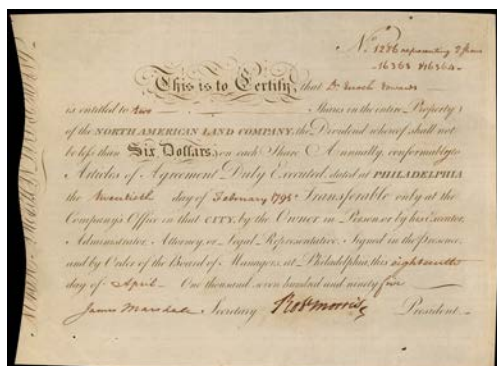 No. 1286 representing 2 Shares
16363 & 16364
This is to Certify, that Dr. Enoch Edwards
is entitled to two Shares in the entire Property
of the NORTH AMERICAN LAND COMPANY, the Dividend whereof shall not
be less than Six Dollars, on each Share Annually, conformably to
Articles of Agreement Duly Executed, dated at PHILADELPHIA
the twentieth day of February 1795 Transferable only at the
Company's Office in that CITY, by the Owner in Person or by his Executor,
Administrator, Attorney, or Legal Representative. Signed in the Presence,
and by Order of the Board of Managers, at Philadelphia, this eighteenth
day of April One thousand seven hundred and ninety five
James Marsdale Secretary Robt Morris President